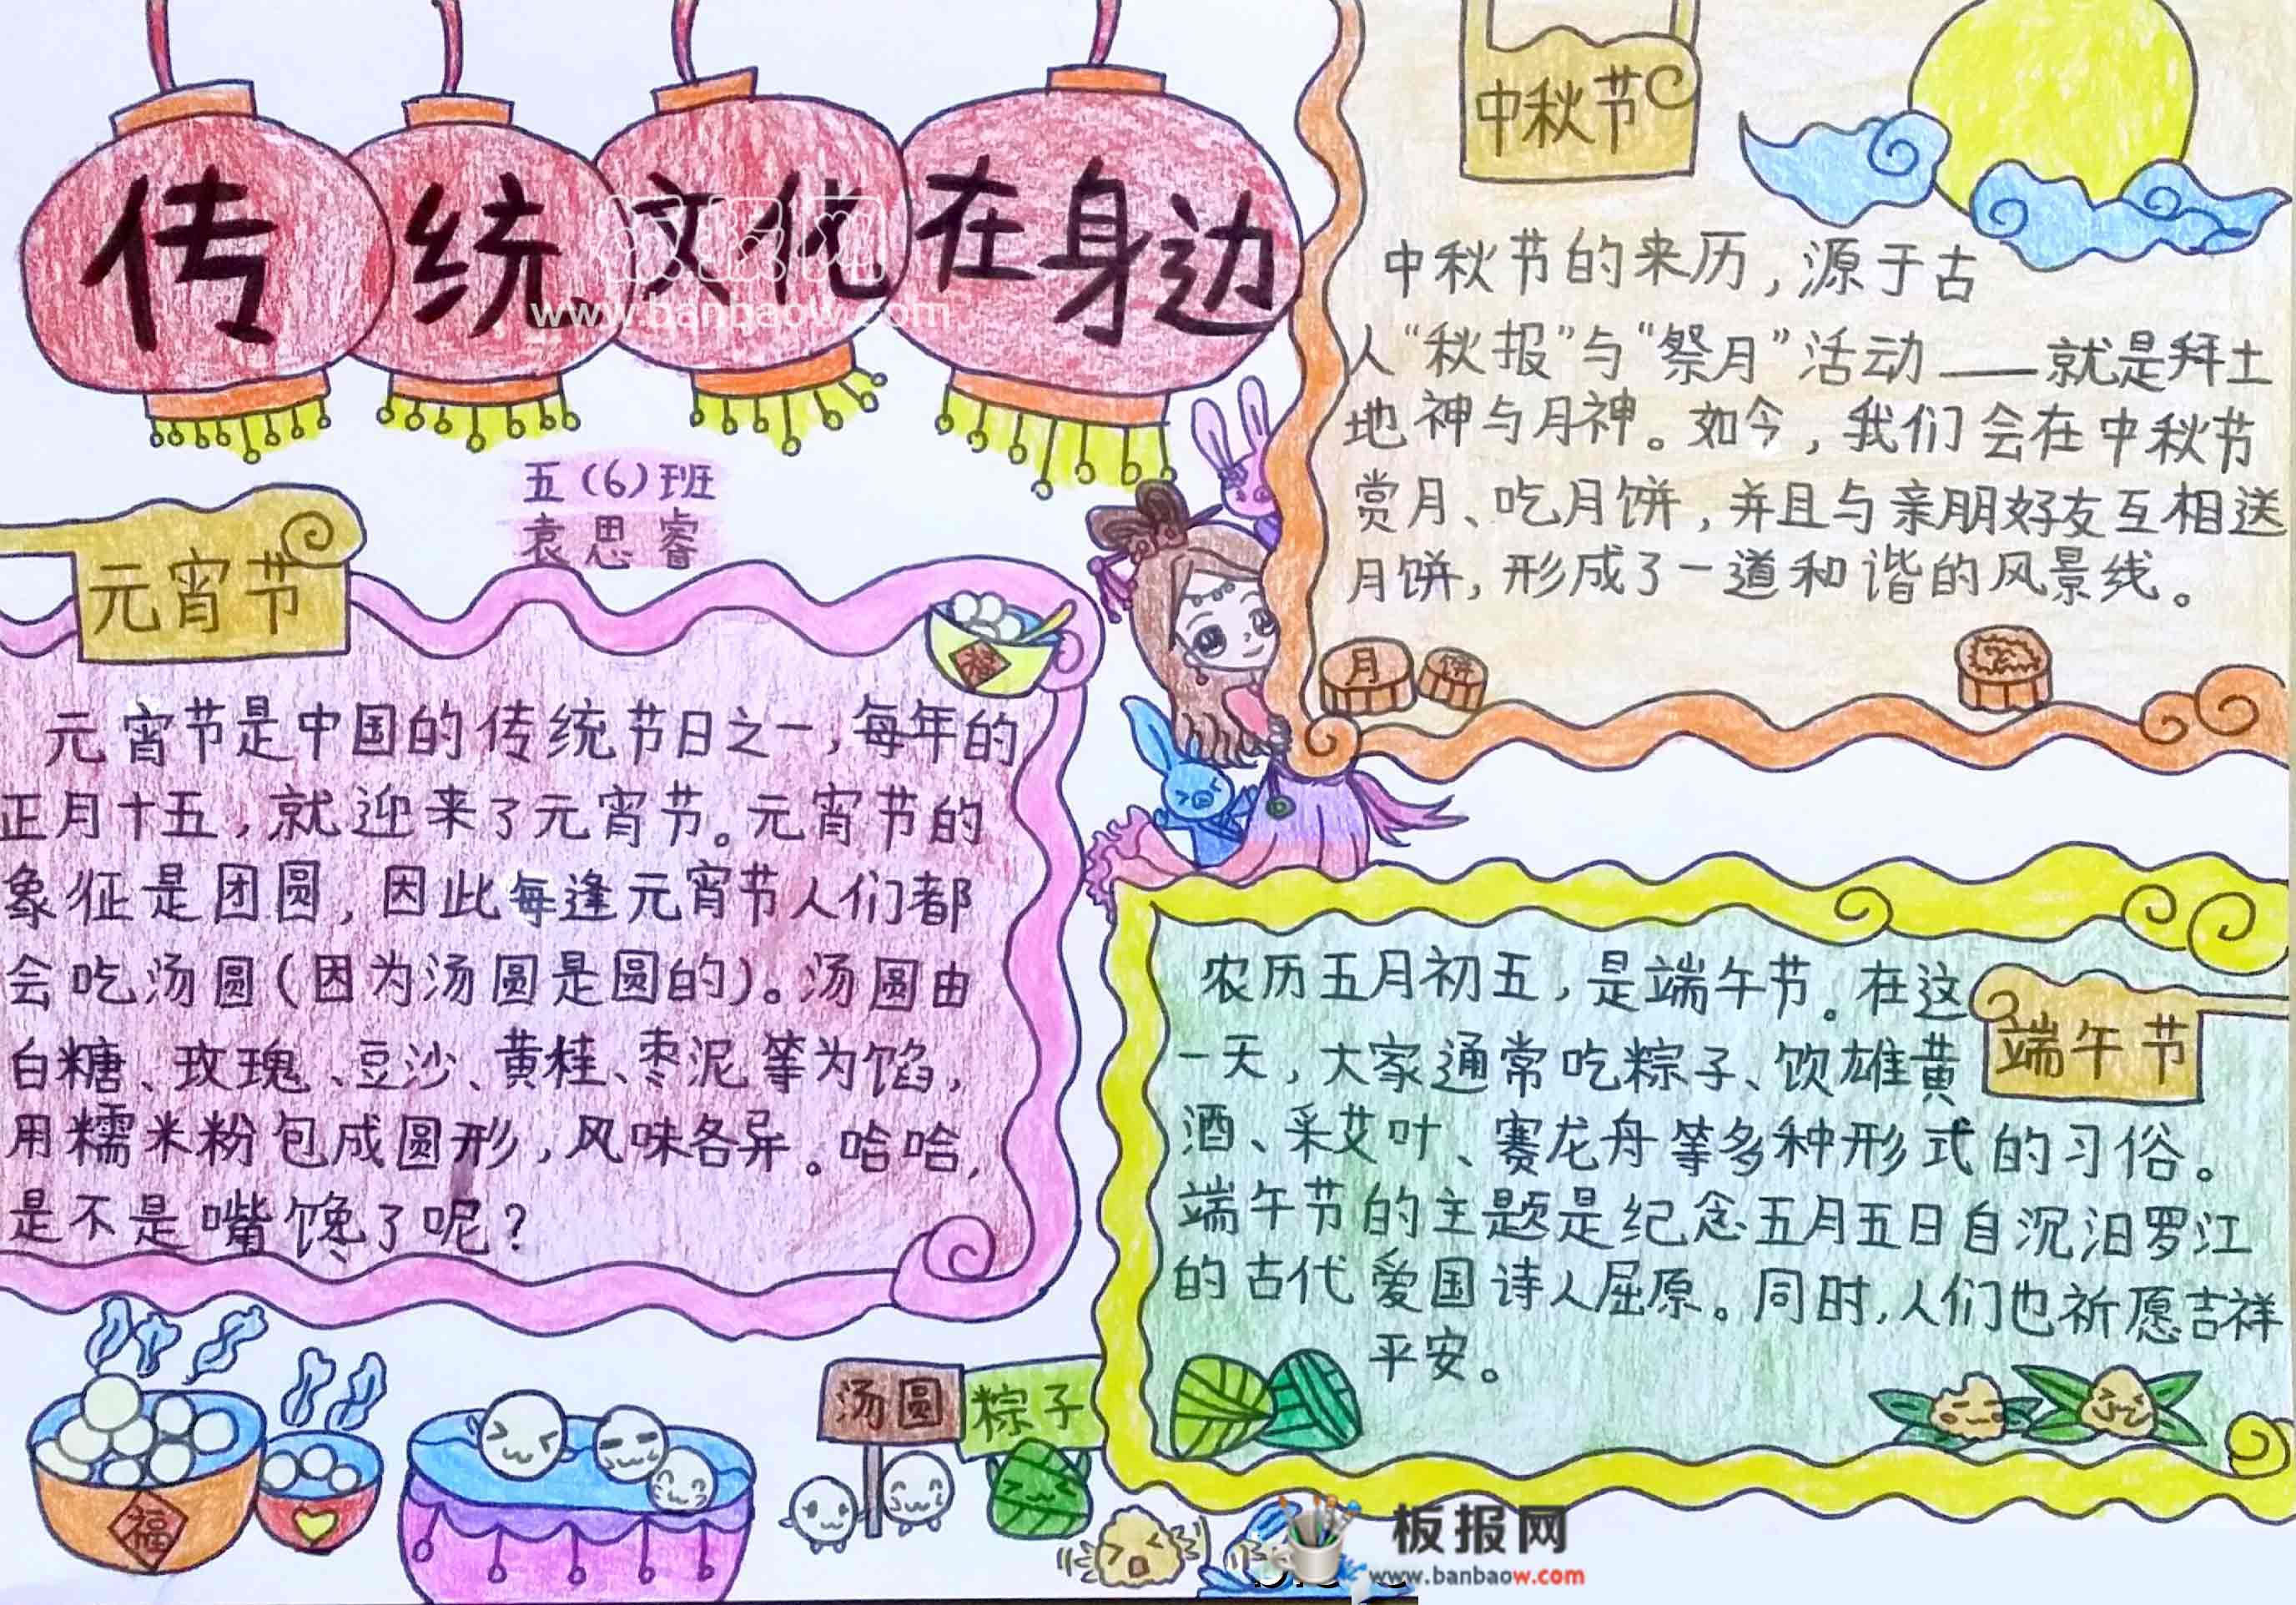 传统文化在身边
www.banbaow.com
五(6)班
袁思睿
元宵节
元宵节是中国的传统节日之一,每年的
正月十五,就迎来了元宵节。元宵节的
象征是团圆,因此每逢元宵节人们都
会吃汤圆(因为汤圆是圆的)。汤圆由
白糖、玫瑰、豆沙、黄桂、枣泥等为馅,
用糯米粉包成圆形,风味各异。哈哈,
是不是嘴馋了呢?
福
汤圆
粽子
中秋节
中秋节的来历,源于古
人“秋报”与“祭月”活动——就是拜土
地神与月神。如今,我们会在中秋节
赏月、吃月饼,并且与亲朋好友互相送
月饼,形成了一道和谐的风景线。
月
饼
端午节
农历五月初五,是端午节。在这
一天,大家通常吃粽子、饮雄黄
酒、采艾叶、赛龙舟等多种形式的习俗。
端午节的主题是纪念五月五日自沉汨罗江
的古代爱国诗人屈原。同时,人们也祈愿吉祥
平安。
板报网
www.banbaow.com